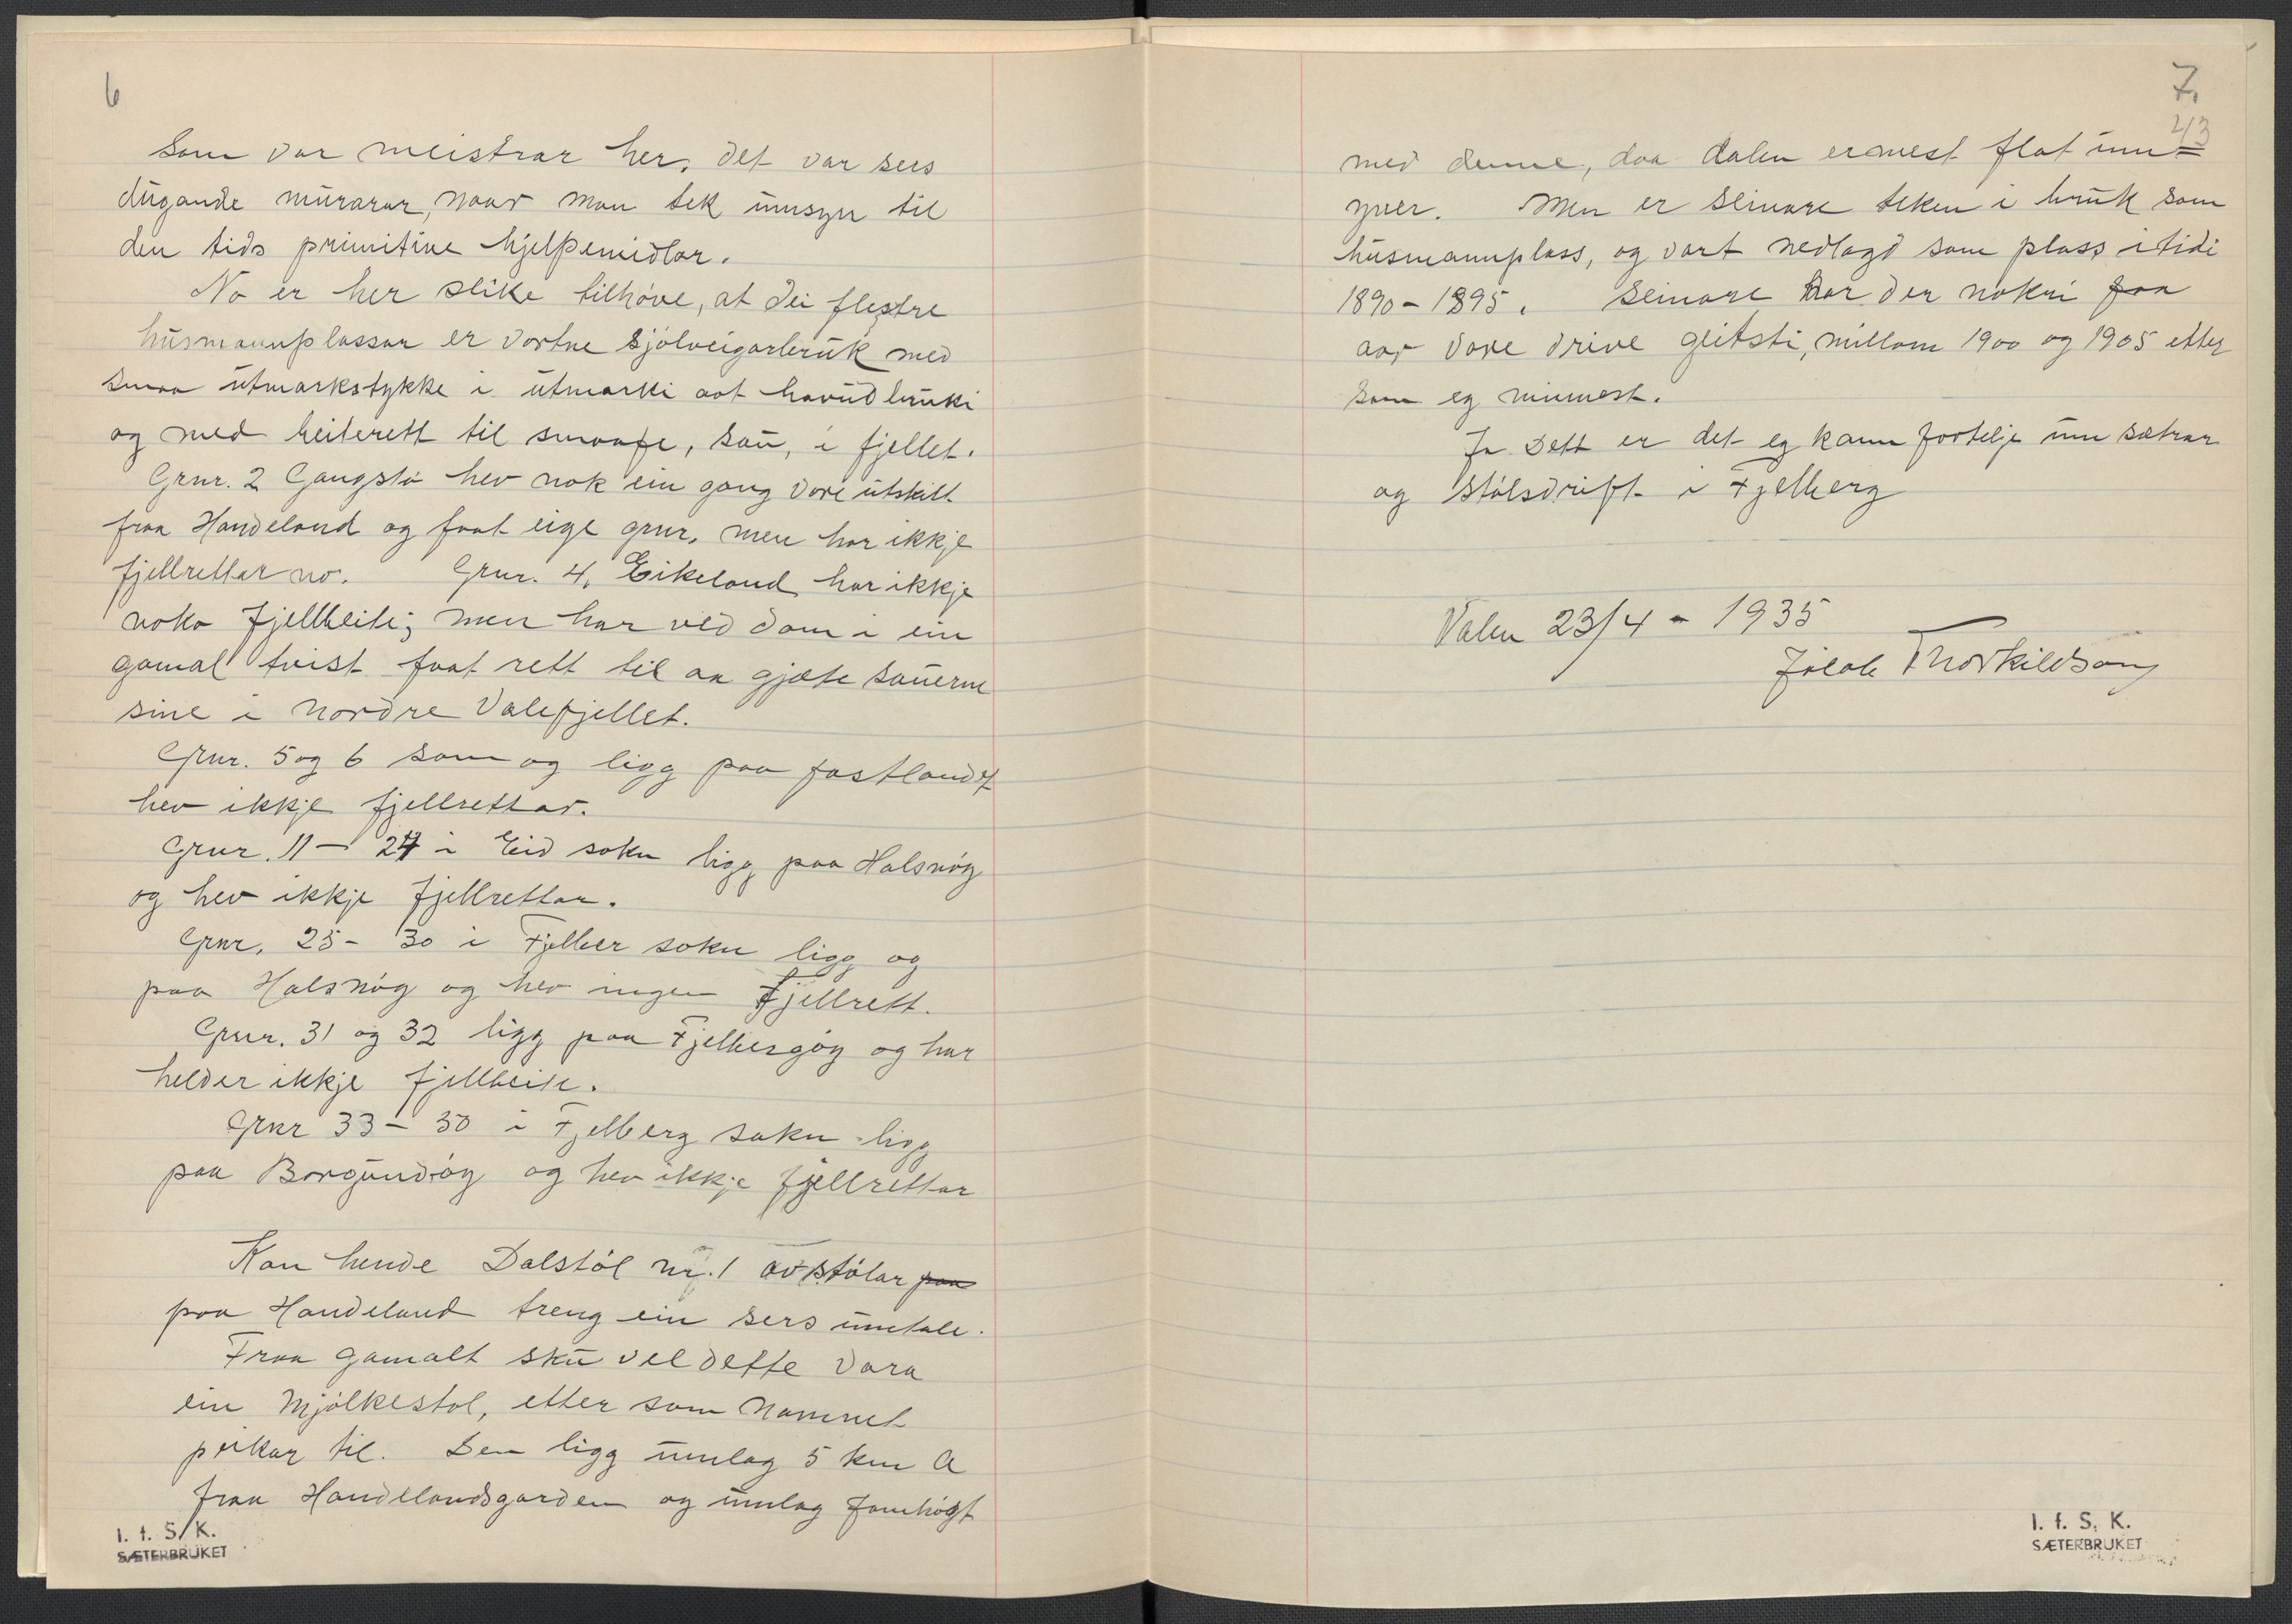 6
som var meistrar her, det var sers
dugande murarar, naar man tek umsyn til
den tids primitive hjelpemidlar.
No er her slike tilhøve, at dei flestre
husmannplassar er vortne sjølveigarbruk med
smaa utmarkstykke i utmarki aat havudbruki
og med beiterett til smaafe, sau, i fjellet.
Grnr. 2 Gangstø hev nok ein gong vore utskilt
fraa Handeland og faat eige grnr, men har ikkje
fjellrettar no. Grnr. 4, Eikeland har ikkje
noko fjellbeite; men har ved dom i ein
gamal tvist faat rett til aa gjæte sauerne
sine i nordre Valefjellet.
Grnr. 5 og 6 som og ligg paa fastlandet
hev ikkje fjellrettar.
Grnr. 11 - 24 i Eid sokn ligg paa Halsnøy
og hev ikkje fjellrettar.
Grnr. 25 - 30 i Fjelber sokn ligg og
paa Halsnøy og hev ingen Fjellrett.
Grnr. 31 og 32 ligg paa Fjelbergøy og har
helder ikkje fjellbeite.
Grnr 33 - 50 i Fjelberg sokn ligg
paa Borgundøy og hev ikkje fjellrettar
Kan hende Dalstøl nr. 1 av stølar paa
paa Handeland treng ein sers umtale.
Fraa gamalt sku vel dette vara
ein Mjølkestøl, etter som namnet
peikar til. Den ligg umlag 5 km A
fraa Handelandsgarden og umlag jamhøgt
I. f. S. K.
SÆTERBRUKET
7.
43
med denne, daa dalen er mest flat inn=
yver. Men er seinare teken i bruk som
husmannplass, og vart nedlagd som plass i tidi
1890 - 1895. Seinare har der nokri faa
aar vore drive geitsti, millom 1900 og 1905 etter
som eg minnest.
Ja Dett er det eg kann fortelje um sætrar
og stølsdrift i Fjelberg
Valen 23/4 - 1935
Jakob Thorkildson
I. f. S. K.
SÆTERBRUKET